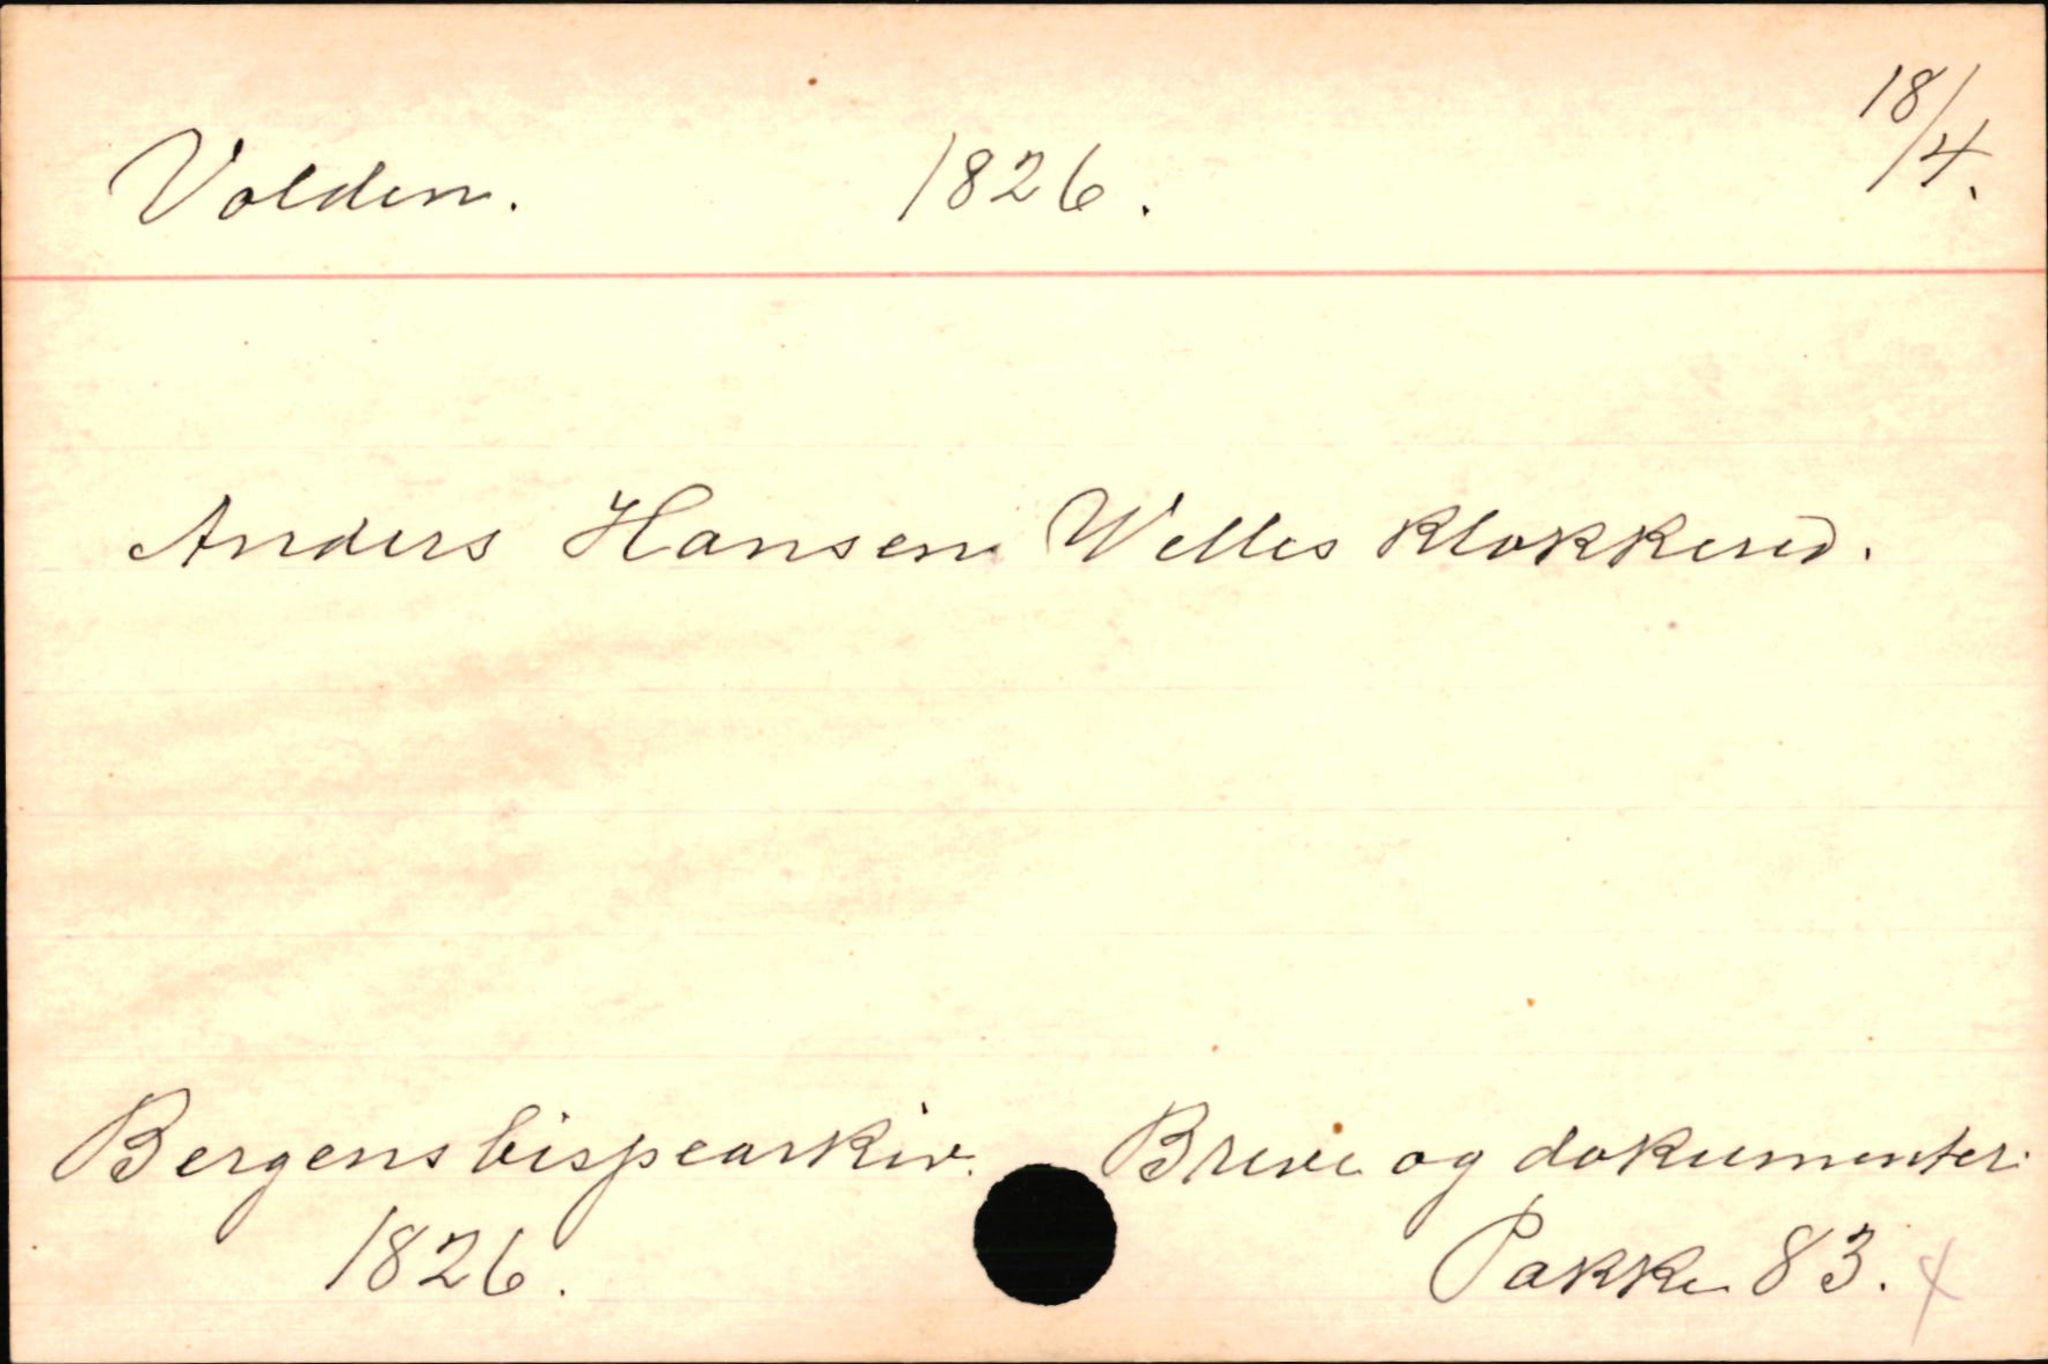 Volden. 1826. 18/4.
Anders Hansen Welles klokkered.
Bergens bispearkiv. Breve og dokumenter.
1826. Pakke 83.